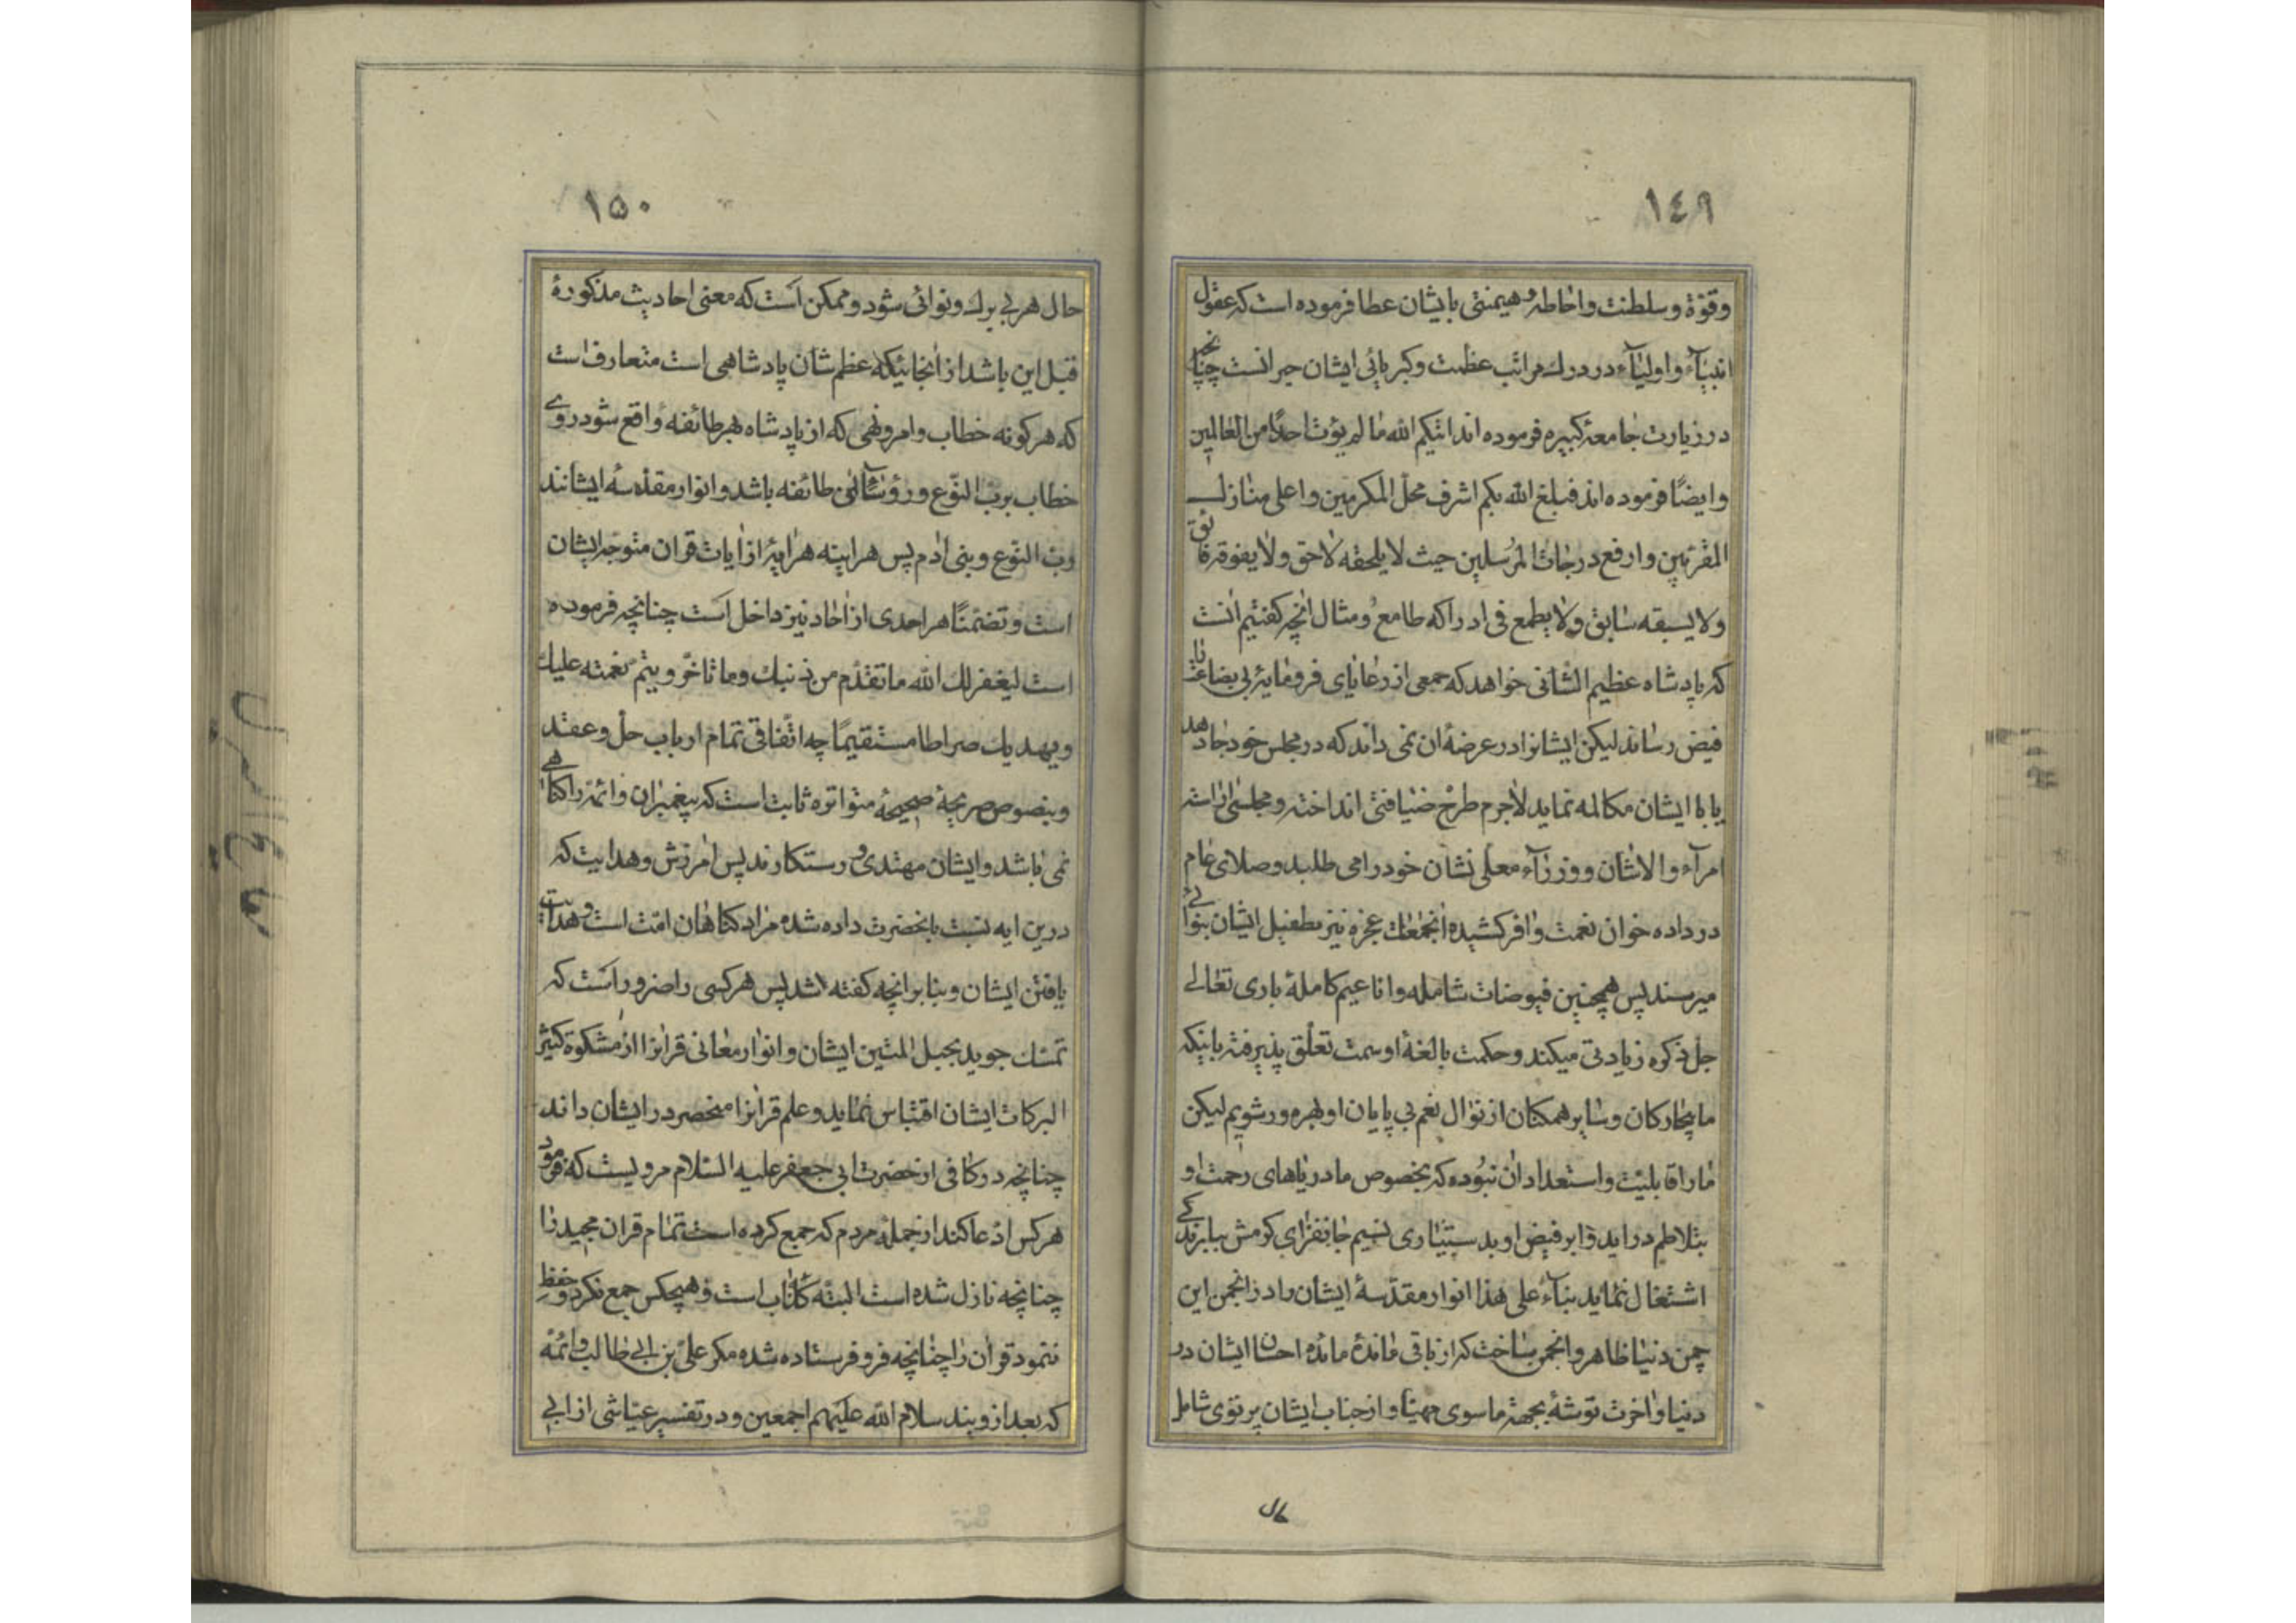 ١٤٩
وقوّة وسلطنت واحاطه وهیمنتی بایشان عطا فرموده است که عقول
انبیآء واولیآء در درك مراتب عظمت وکبریائی ایشان حیرانست چنانچه
در زیارت جامعهٔ کبیره فرموده اند اتیکم الله ما لم یؤت احدًا من العالمین
وایضًا فرموده اند فبلغ الله بکم اشرف محلّ المکرمین واعلی منازل
المقرّبین وارفع درجات المرسلین حیث لا یلحقه لاحق ولا یفوقه فائق
ولا یسبقه سابق ولا یطمع فی ادراکه طامع ومثال انچه کفتیم انست
که پادشاه عظیم الشانی خواهد که جمعی از رعایای فرومایهٔ بی بضاعت را
فیض رساند لیکن ایشانرا در عرضهٔ ان نمی داند که در مجلس خود جا دهد
یا با ایشان مکالمه نماید لاجرم طرح ضیافتی انداخته ومجلسی اراسته
امرآء والاشان ووزرآء معلّی نشان خود را می طلبد وصلای عام
در داده خوان نعمت وافر کشیده انجماعت عجزه نیز بطفیل ایشان بنوائی
میرسند پس همچنین فیوضات شامله واناعیم کاملهٔ باری تعالی
جلّ ذکره زیادتی میکند وحکمت بالغهٔ او سمت تعلّق پذیرفته باینکه
ما بیچارکان وسایر همکنان از نوال نعم بی پایان او بهره ور شویم لیکن
ما را قابلیّت واستعداد ان نبوده که بخصوص ما دریاهای رحمت او
بتلاطم در اید وابر فیض او بدستیاری نسیم جانفزای کرمش ببارندکی
اشتغال نماید بنآءً علی هذا انوار مقدّسهٔ ایشان را در انجمن این
چمن دنیا ظاهر وانجمن ساخت که از باقی ماندهٔ مائده احسان ایشان در
دنیا واخرت توشهٔ بجهة ماسوی مهیّا واز جناب ایشان پرتوی شامل
حال
١٥٠
حال هر بی برك ونوائی شود وممکن است که معنی احادیث مذکورهٔ
قبل این باشد از انجائیکه عظم شان پادشاهی است متعارف است
که هر کونه خطاب وامر ونهی که از پادشاه بهر طائفه واقع شود روی
خطاب برب النّوع ورؤسآئی طائفه باشد وانوار مقدّسهٔ ایشانند
رب النّوع وبنی ادم پس هراینه هر ایهٔ از ایات قران متوجّه ایشان
است وتضمّنًا هر احدی از احاد نیز داخل است چنانچه فرموده
است لیغفر لك الله ما تقدّم من ذنبك وما تاخّر ویتمّ نعمته علیك
ویهدیك صراطا مستقیمًا چه اتّفاقی تمام ارباب حلّ وعقد
وبنصوص صریحهٔ صحیحهٔ متواتره ثابت است که پیغمبران وائمّه را کناهی
نمی باشد وایشان مهتدی ورستکارند پس امرزش وهدایت که
درین ایه نسبت بانحضرت داده شده مراد کناهان امّت است وهدایت
یافتن ایشان وبنا بر انچه کفته شد پس هر کسی را ضرور است که
تمسّك جوید بحبل المتین ایشان وانوار معانی قرانرا از مشکوة کثیر
البرکات ایشان اقتباس نماید وعلم قرانرا منحصر در ایشان داند
چنانچه در کافی از حضرت ابی جعفر علیه السّلام مرویست که فرمود
هر کس ادّعا کند از جملهٔ مردم که جمع کرده است تمام قران مجید را
چنانچه نازل شده است البتّه کذّاب است وهیچکس جمع نکرد وحفظ
ننمود قران را چنانچه فرو فرستاده شده مکر علیّ بن ابی طالب وائمّه
که بعد از ویند سلام الله علیهم اجمعین ودر تفسیر عیّاشی از ابی